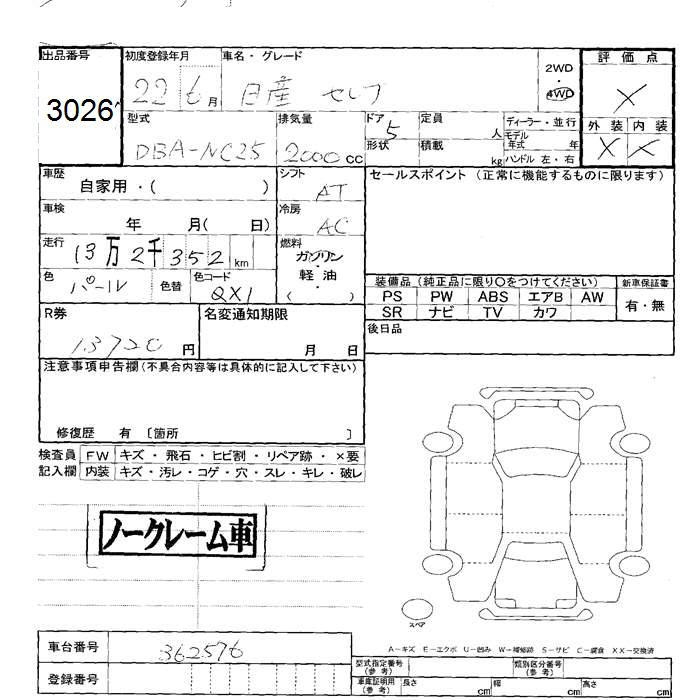 出品番号 初度登録年月 車名・グレード 2WD 評価点
3026 22 6月 日産 セレナ 4WD ×
型式 排気量 ドア 5 定員 人 ディーラー・並行 外装 内装
DBA-NC25 2000 cc 形状 積載 kg モデル年式 年 × ×
ハンドル 左・右
車歴 シフト セールスポイント (正常に機能するものに限ります)
自家用・( ) AT
車検 冷房
年 月( 日) AC
走行 燃料
13万2千352 km ガソリン・軽油・( )
色 色替 色コード 装備品 (純正品に限り○をつけてください) 新車保証書
パール QX1 PS PW ABS エアB AW 有・無
SR ナビ TV カワ
R券 名変通知期限 後日品
13720 円 月 日
注意事項申告欄(不具合内容等は具体的に記入して下さい)
修復歴 有 〔箇所 〕
検査員 FW キズ・飛石・ヒビ割・リペア跡・×要
記入欄 内装 キズ・汚レ・コゲ・穴・スレ・キレ・破レ
ノークレーム車
スペア
A-キズ E-エクボ U-凹み W-補修跡 S-サビ C-腐食 XX-交換済
車台番号 362576
型式指定番号 (参考) 類別区分番号 (参考)
登録番号
車庫証明用 (参考) 長さ cm 幅 cm 高さ cm